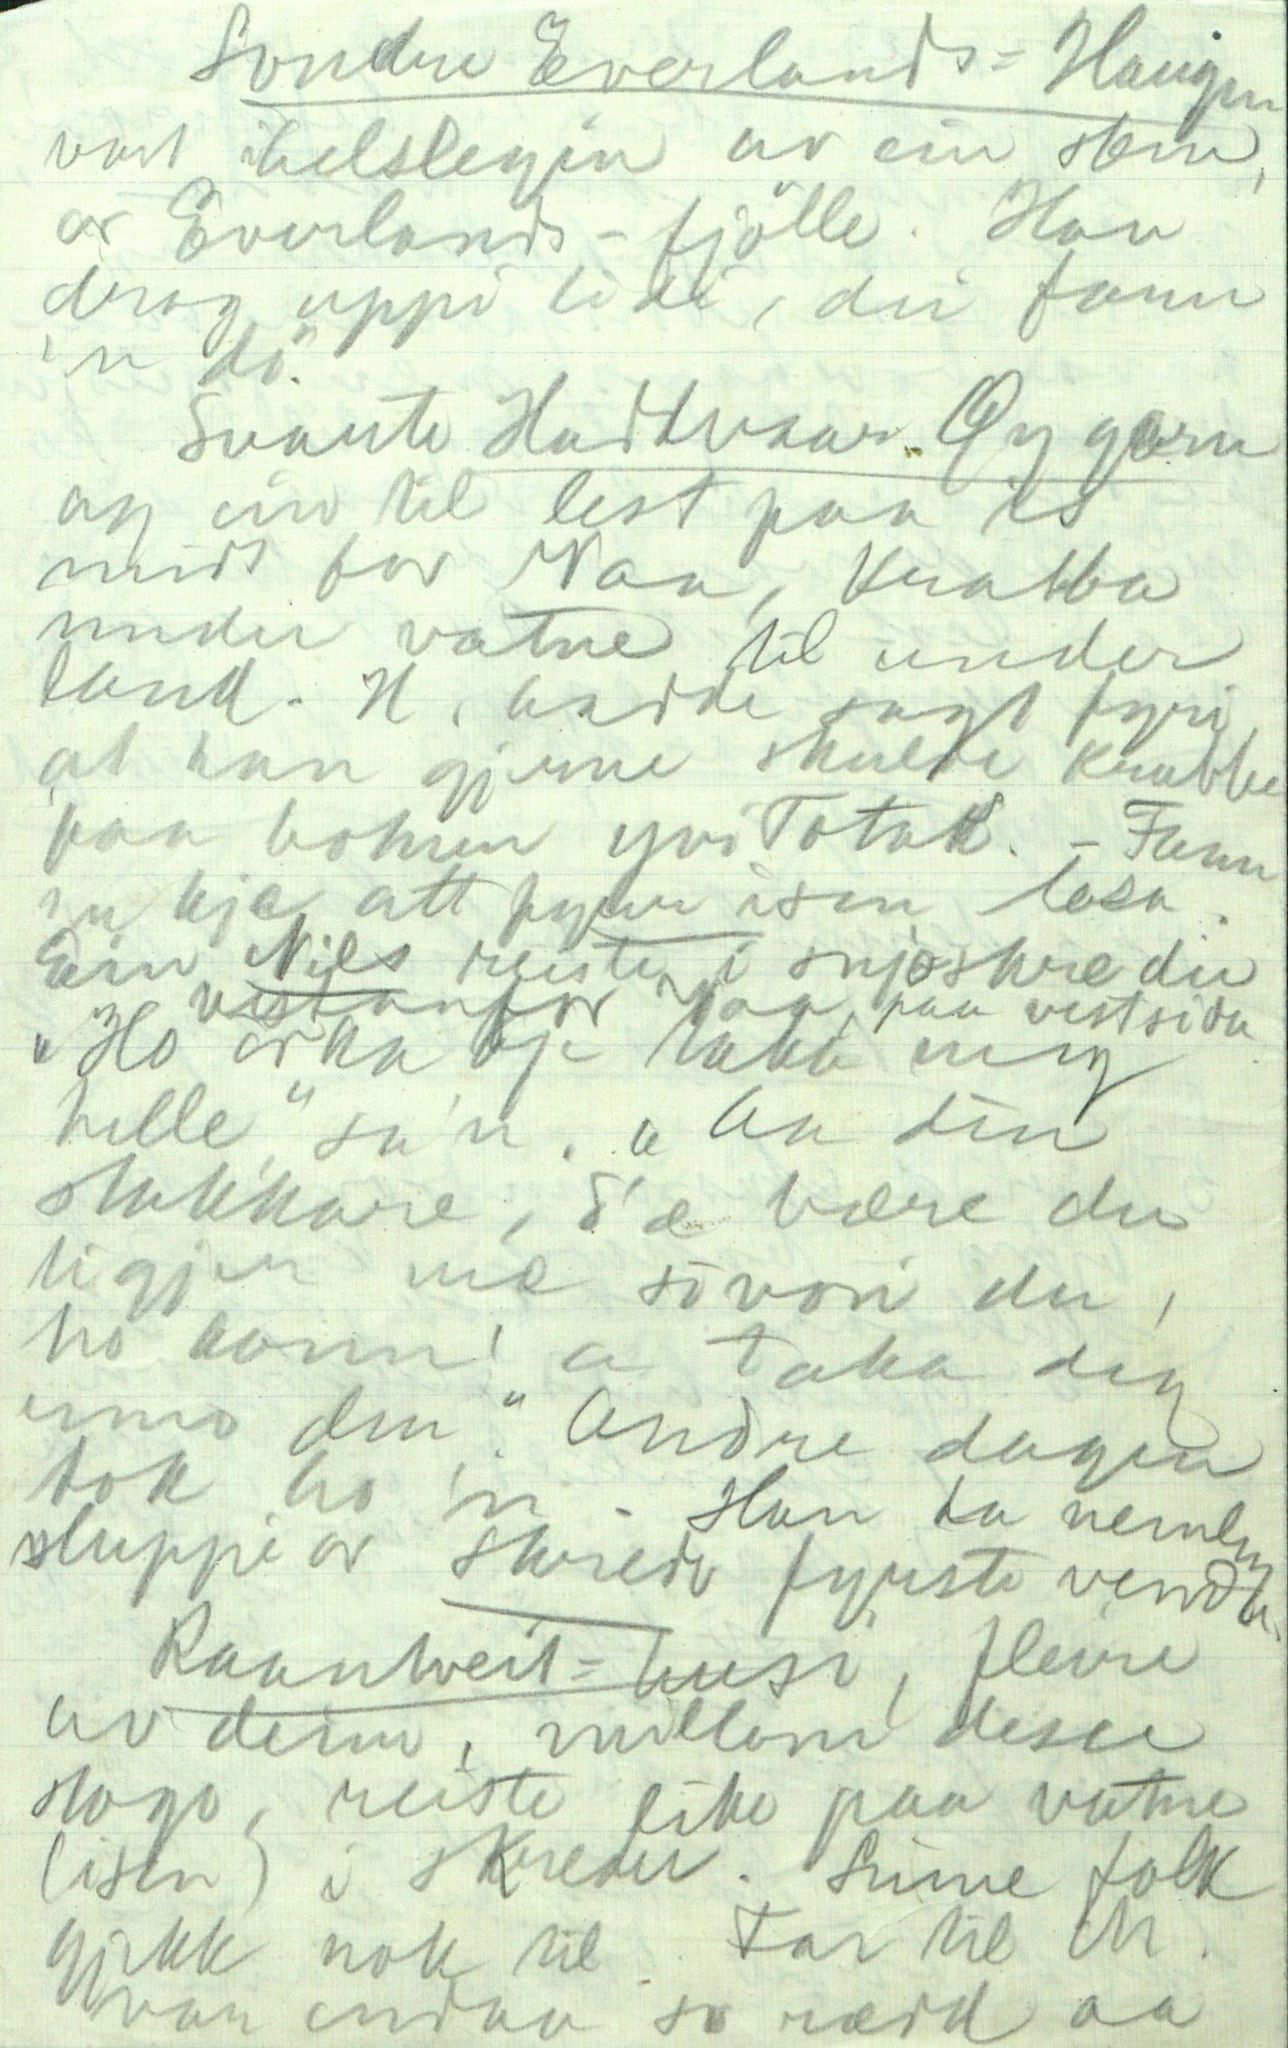 Sondre Everlands-Haugen
vart ihelslegin av ein stein,
or Everlands-fjölle. Han
drog uppi lidi, dei fann
'n dö.
Svarte Hadtvaar Øygarn
og ein til lest paa is
midt for Naa, Krabba
under vatne til under
land. H. hadde sagt fyri,
at han gjerne skulde krabbe
paa botnen yvi Totak. - Fann
'n kje att fyrr isen losa.
Ein Nils reiste i snjoskredu
vestanfor Naa, paa vestsida
"Ho orka kje taka meg
helle," sa'n. "Aa din
stakkare, d'æ bære du
ligjer me sovori du,
ho konn' a taka deg
enno den". Andre dagen
tok ho 'n. - Han ha nemleg
sluppi or skredo fyrste vendo.
Raantveit-husi, fleire
av deim, millom desse
stogo, reiste like paa vatne
(isen) i skredu. Sume folk
gjekk nok til. Far til M.
var endaa so rædd aa